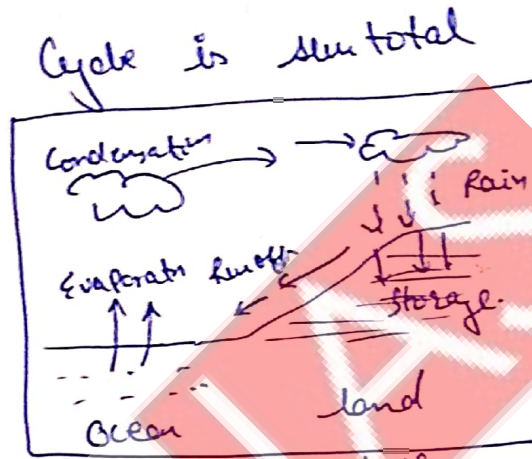 Cycle is sum total
Condensation
Rain
Evaporatn Runoff
Storage.
Ocean
land